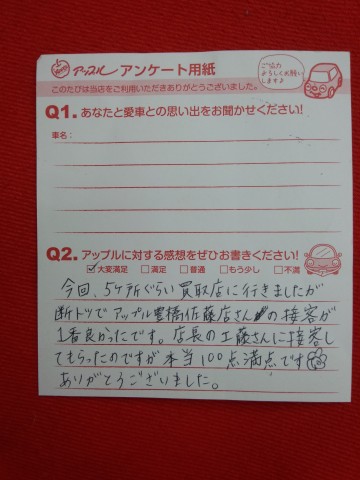 アップル アンケート用紙
ご協力
よろしくお願い
します♪
このたびは当店をご利用いただきありがとうございました。
Q1. あなたと愛車との思い出をお聞かせください!
車名:
Q2. アップルに対する感想をぜひお書きください!
☑大変満足 □満足 □普通 □もう少し □不満
今回、5ヶ所ぐらい買取店に行きましたが
断トツでアップル豊橋佐藤店さんの接客が
1番良かったです。店長の工藤さんに接客し
てもらったのですが本当100点満点です
ありがとうございました。